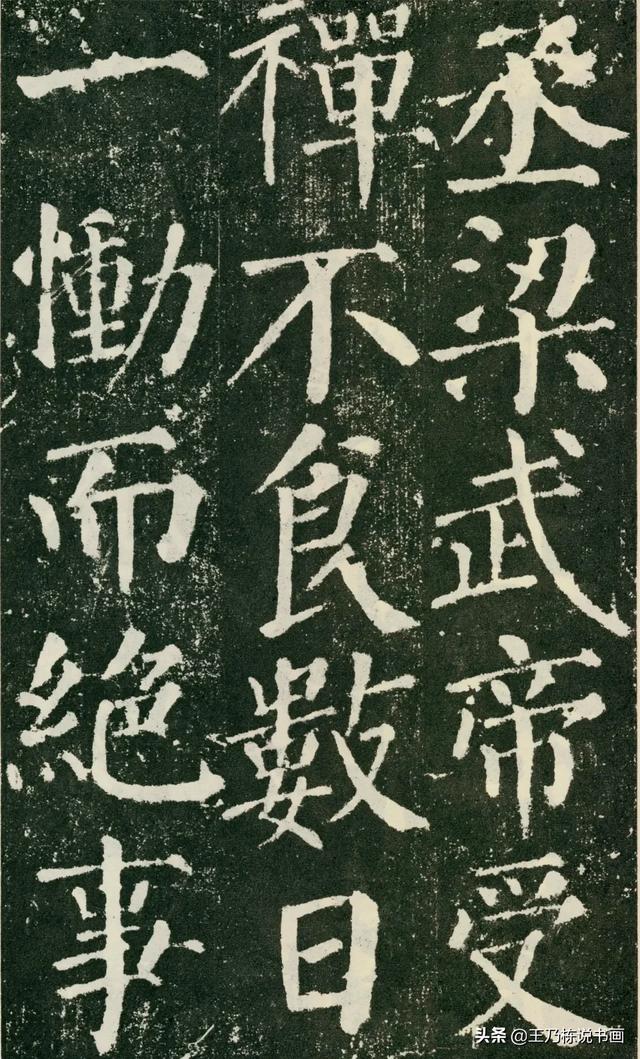 丞梁武帝受
禪不食數日
一慟而絕事
头条 @王乃栋说书画